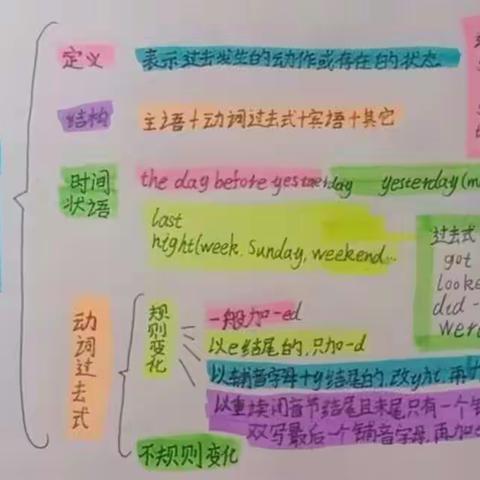 定义 表示过去发生的动作或存在的状态
结构 主语+动词过去式+宾语+其它
时间状语 the day before yesterday yesterday(m
last
night(week, Sunday, weekend...
过去式
got
looke
did -
were
动词过去式
规则变化
一般加-ed
以e结尾的,只加-d
以辅音字母+y结尾的,改y为i,再
以重读闭音节结尾且末尾只有一个
双写最后一个辅音字母,再加e
不规则变化